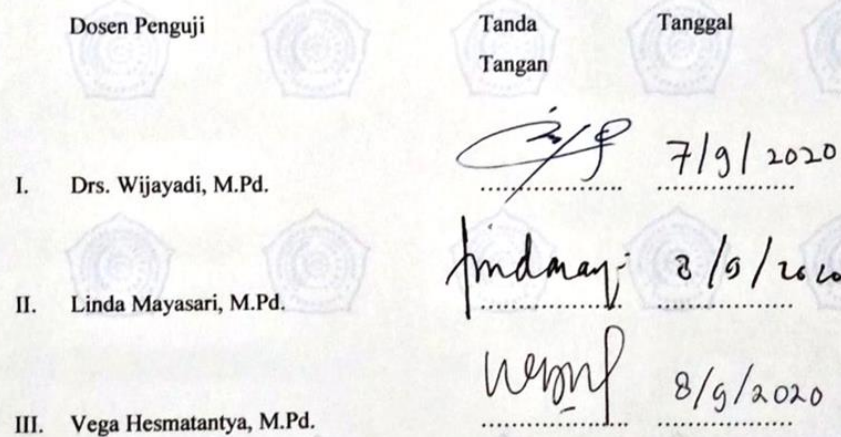 Dosen Penguji Tanda Tanggal
Tangan
7/9/2020
I. Drs. Wijayadi, M.Pd. .................... ....................
8/9/2020
II. Linda Mayasari, M.Pd. .................... ....................
8/9/2020
III. Vega Hesmatantya, M.Pd. .................... ....................